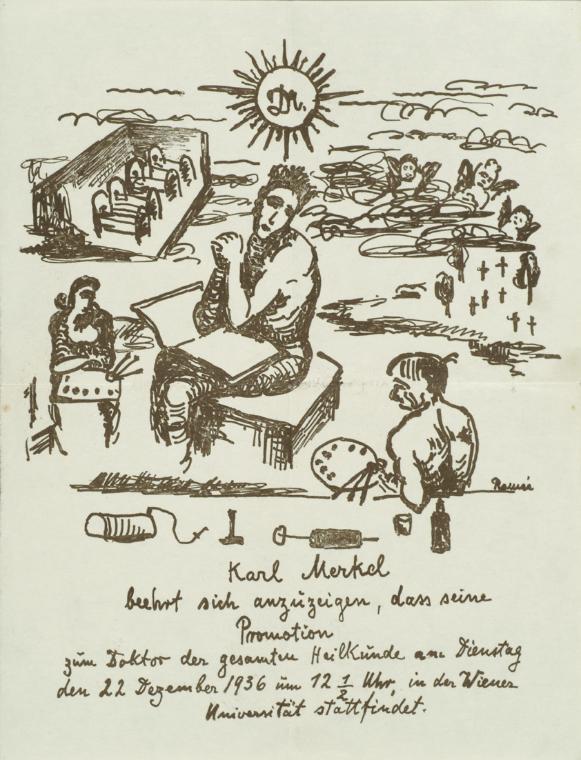 Dr.
Karl Merkel
beehrt sich anzuzeigen, dass seine
Promotion
zum Doktor der gesamten Heilkunde am Dienstag
den 22 Dezember 1936 um 12 1/2 Uhr, in der Wiener
Universität stattfindet.